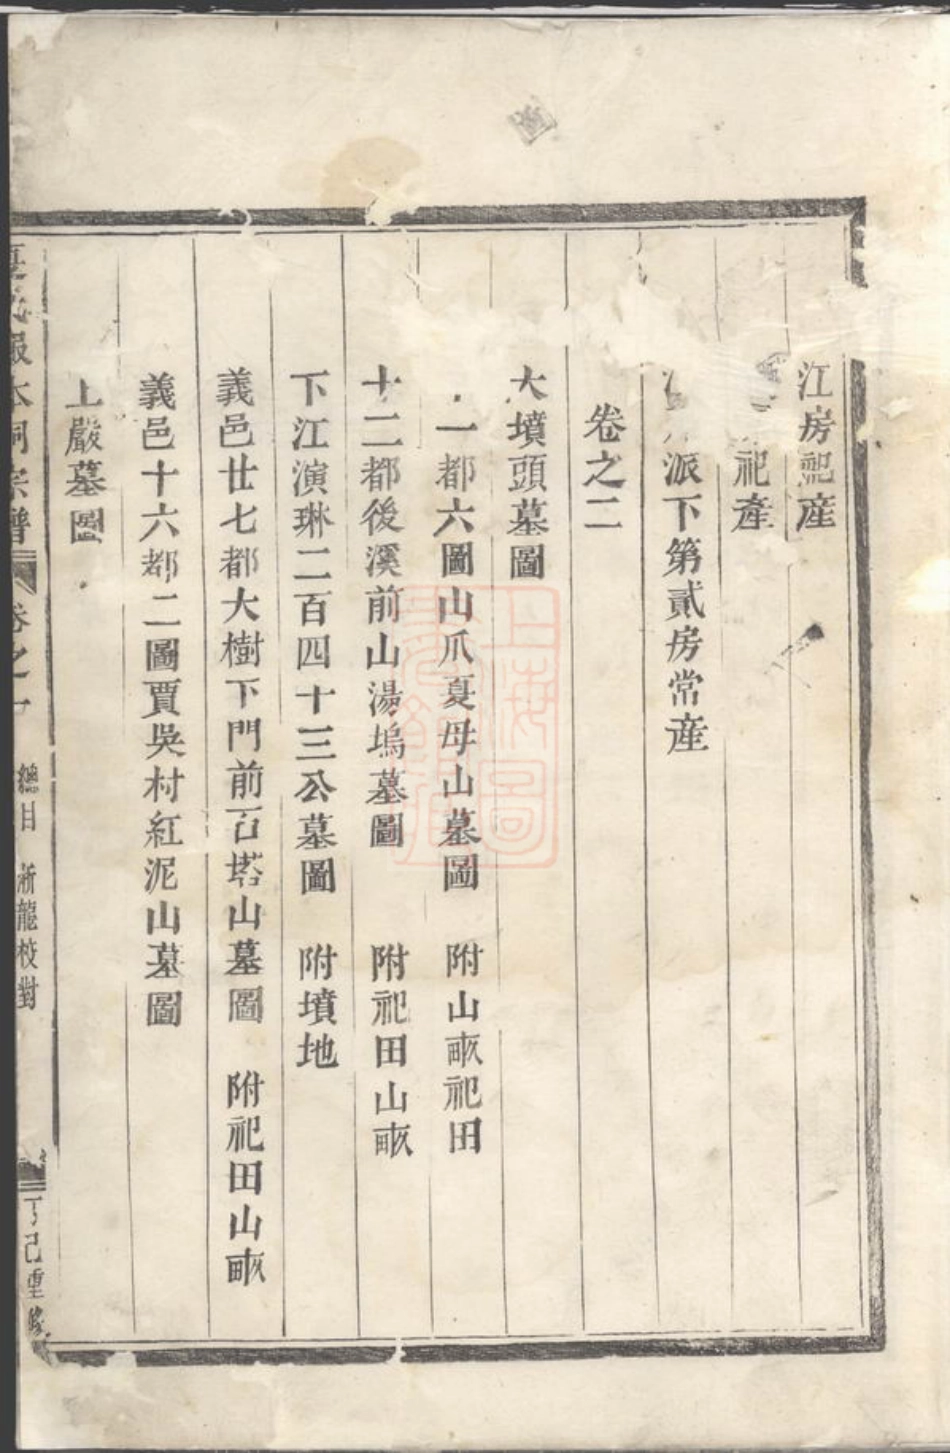 江房祀産
祀產
派下第貳房常産
卷之二
大墳頭墓圖
一都六圖山爪夏母山墓圖 附山畝祀田
十二都後溪前山湯塢墓圖 附祀田山畝
下江演琳二百四十三公墓圖 附墳地
義邑廿七都大樹下門前石塔山墓圖 附祀田山畝
義邑十六都二圖賈吳村紅泥山墓圖
上嚴墓圖
氏報本祠宗譜 卷之一 總目 淅龍校對 丁巳重修